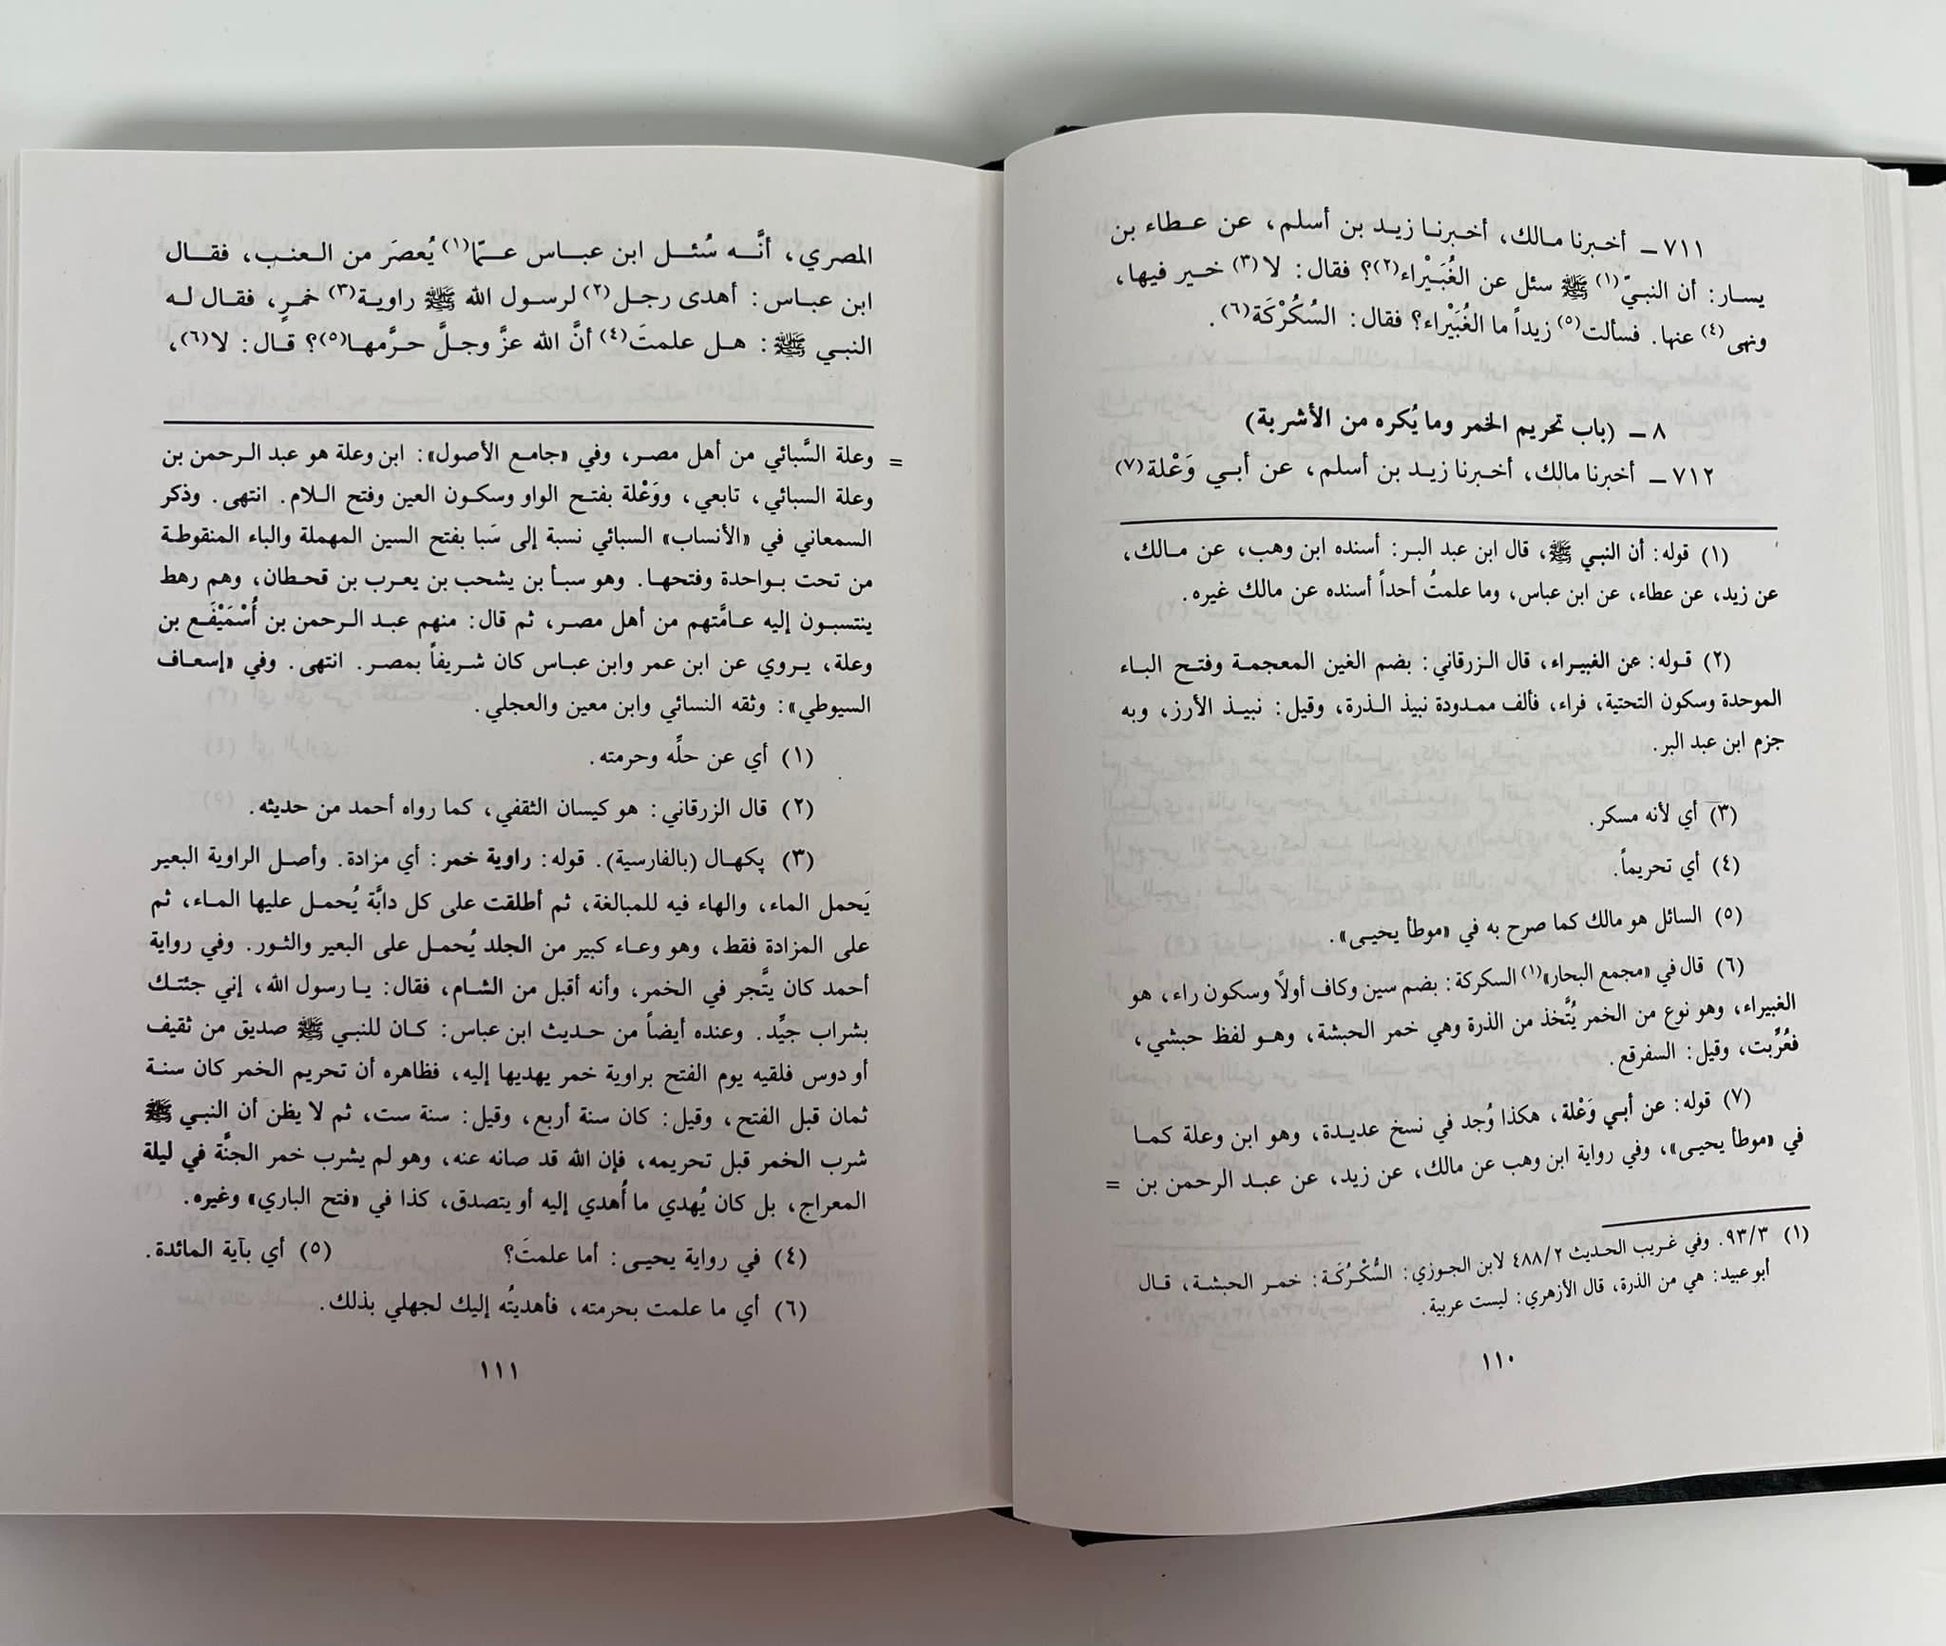 ٧١١ ـ أخبرنا مالك، أخبرنا زيد بن أسلم، عن عطاء بن
يسار: أن النبيّ(١) ﷺ سئل عن الغُبَيْراء(٢)؟ فقال: لا(٣) خير فيها،
ونهى(٤) عنها. فسألت(٥) زيداً ما الغُبَيْراء؟ فقال: السُكُرْكَة(٦).
٨ ـ (باب تحريم الخمر وما يُكره من الأشربة)
٧١٢ ـ أخبرنا مالك، أخبرنا زيد بن أسلم، عن أبي وَعْلة(٧)
(١) قوله: أن النبي ﷺ، قال ابن عبد البر: أسنده ابن وهب، عن مالك،
عن زيد، عن عطاء، عن ابن عباس، وما علمتُ أحداً أسنده عن مالك غيره.
(٢) قوله: عن الغبيراء، قال الزرقاني: بضم الغين المعجمة وفتح الباء
الموحدة وسكون التحتية، فراء، فألف ممدودة نبيذ الذرة، وقيل: نبيذ الأرز، وبه
جزم ابن عبد البر.
(٣) أي لأنه مسكر.
(٤) أي تحريماً.
(٥) السائل هو مالك كما صرح به في «موطأ يحيى».
(٦) قال في «مجمع البحار»(١) السكركة: بضم سين وكاف أولًا وسكون راء، هو
الغبيراء، وهو نوع من الخمر يُتَّخذ من الذرة وهي خمر الحبشة، وهو لفظ حبشي،
فعُرِّبت، وقيل: السفرقع.
(٧) قوله: عن أبي وَعْلة، هكذا وُجد في نسخ عديدة، وهو ابن وعلة كما
في «موطأ يحيى»، وفي رواية ابن وهب عن مالك، عن زيد، عن عبد الرحمن بن =
(١) ٩٣/٣. وفي غريب الحديث ٤٨٨/٢ لابن الجوزي: السُّكْرُكَة: خمر الحبشة، قال
أبو عبيد: هي من الذرة، قال الأزهري: ليست عربية.
١١٠
المصري، أنَّه سُئل ابن عباس عمّا(١) يُعصَر من العنب، فقال
ابن عباس: أهدى رجل(٢) لرسول الله ﷺ راوية(٣) خمرٍ، فقال له
النبي ﷺ: هل علمتَ(٤) أنَّ الله عزَّ وجلَّ حرَّمها(٥)؟ قال: لا(٦)،
= وعلة السَّبائي من أهل مصر، وفي «جامع الأصول»: ابن وعلة هو عبد الرحمن بن
وعلة السبائي، تابعي، ووَعْلة بفتح الواو وسكون العين وفتح اللام. انتهى. وذكر
السمعاني في «الأنساب» السبائي نسبة إلى سَبا بفتح السين المهملة والباء المنقوطة
من تحت بواحدة وفتحها. وهو سبأ بن يشحب بن يعرب بن قحطان، وهم رهط
ينتسبون إليه عامَّتهم من أهل مصر، ثم قال: منهم عبد الرحمن بن أُسْمَيْفَع بن
وعلة، يروي عن ابن عمر وابن عباس كان شريفاً بمصر. انتهى. وفي «إسعاف
السيوطي»: وثقه النسائي وابن معين والعجلي.
(١) أي عن حلِّه وحرمته.
(٢) قال الزرقاني: هو كيسان الثقفي، كما رواه أحمد من حديثه.
(٣) پكهال (بالفارسية). قوله: راوية خمر: أي مزادة. وأصل الراوية البعير
يَحمل الماء، والهاء فيه للمبالغة، ثم أطلقت على كل دابَّة يُحمل عليها الماء، ثم
على المزادة فقط، وهو وعاء كبير من الجلد يُحمل على البعير والثور. وفي رواية
أحمد كان يتَّجر في الخمر، وأنه أقبل من الشام، فقال: يا رسول الله، إني جئتك
بشراب جيِّد. وعنده أيضاً من حديث ابن عباس: كان للنبي ﷺ صديق من ثقيف
أو دوس فلقيه يوم الفتح براوية خمر يهديها إليه، فظاهره أن تحريم الخمر كان سنة
ثمان قبل الفتح، وقيل: كان سنة أربع، وقيل: سنة ست، ثم لا يظن أن النبي ﷺ
شرب الخمر قبل تحريمه، فإن الله قد صانه عنه، وهو لم يشرب خمر الجنَّة في ليلة
المعراج، بل كان يُهدي ما أُهدي إليه أو يتصدق، كذا في «فتح الباري» وغيره.
(٤) في رواية يحيى: أما علمتَ؟ (٥) أي بآية المائدة.
(٦) أي ما علمت بحرمته، فأهديتُه إليك لجهلي بذلك.
١١١